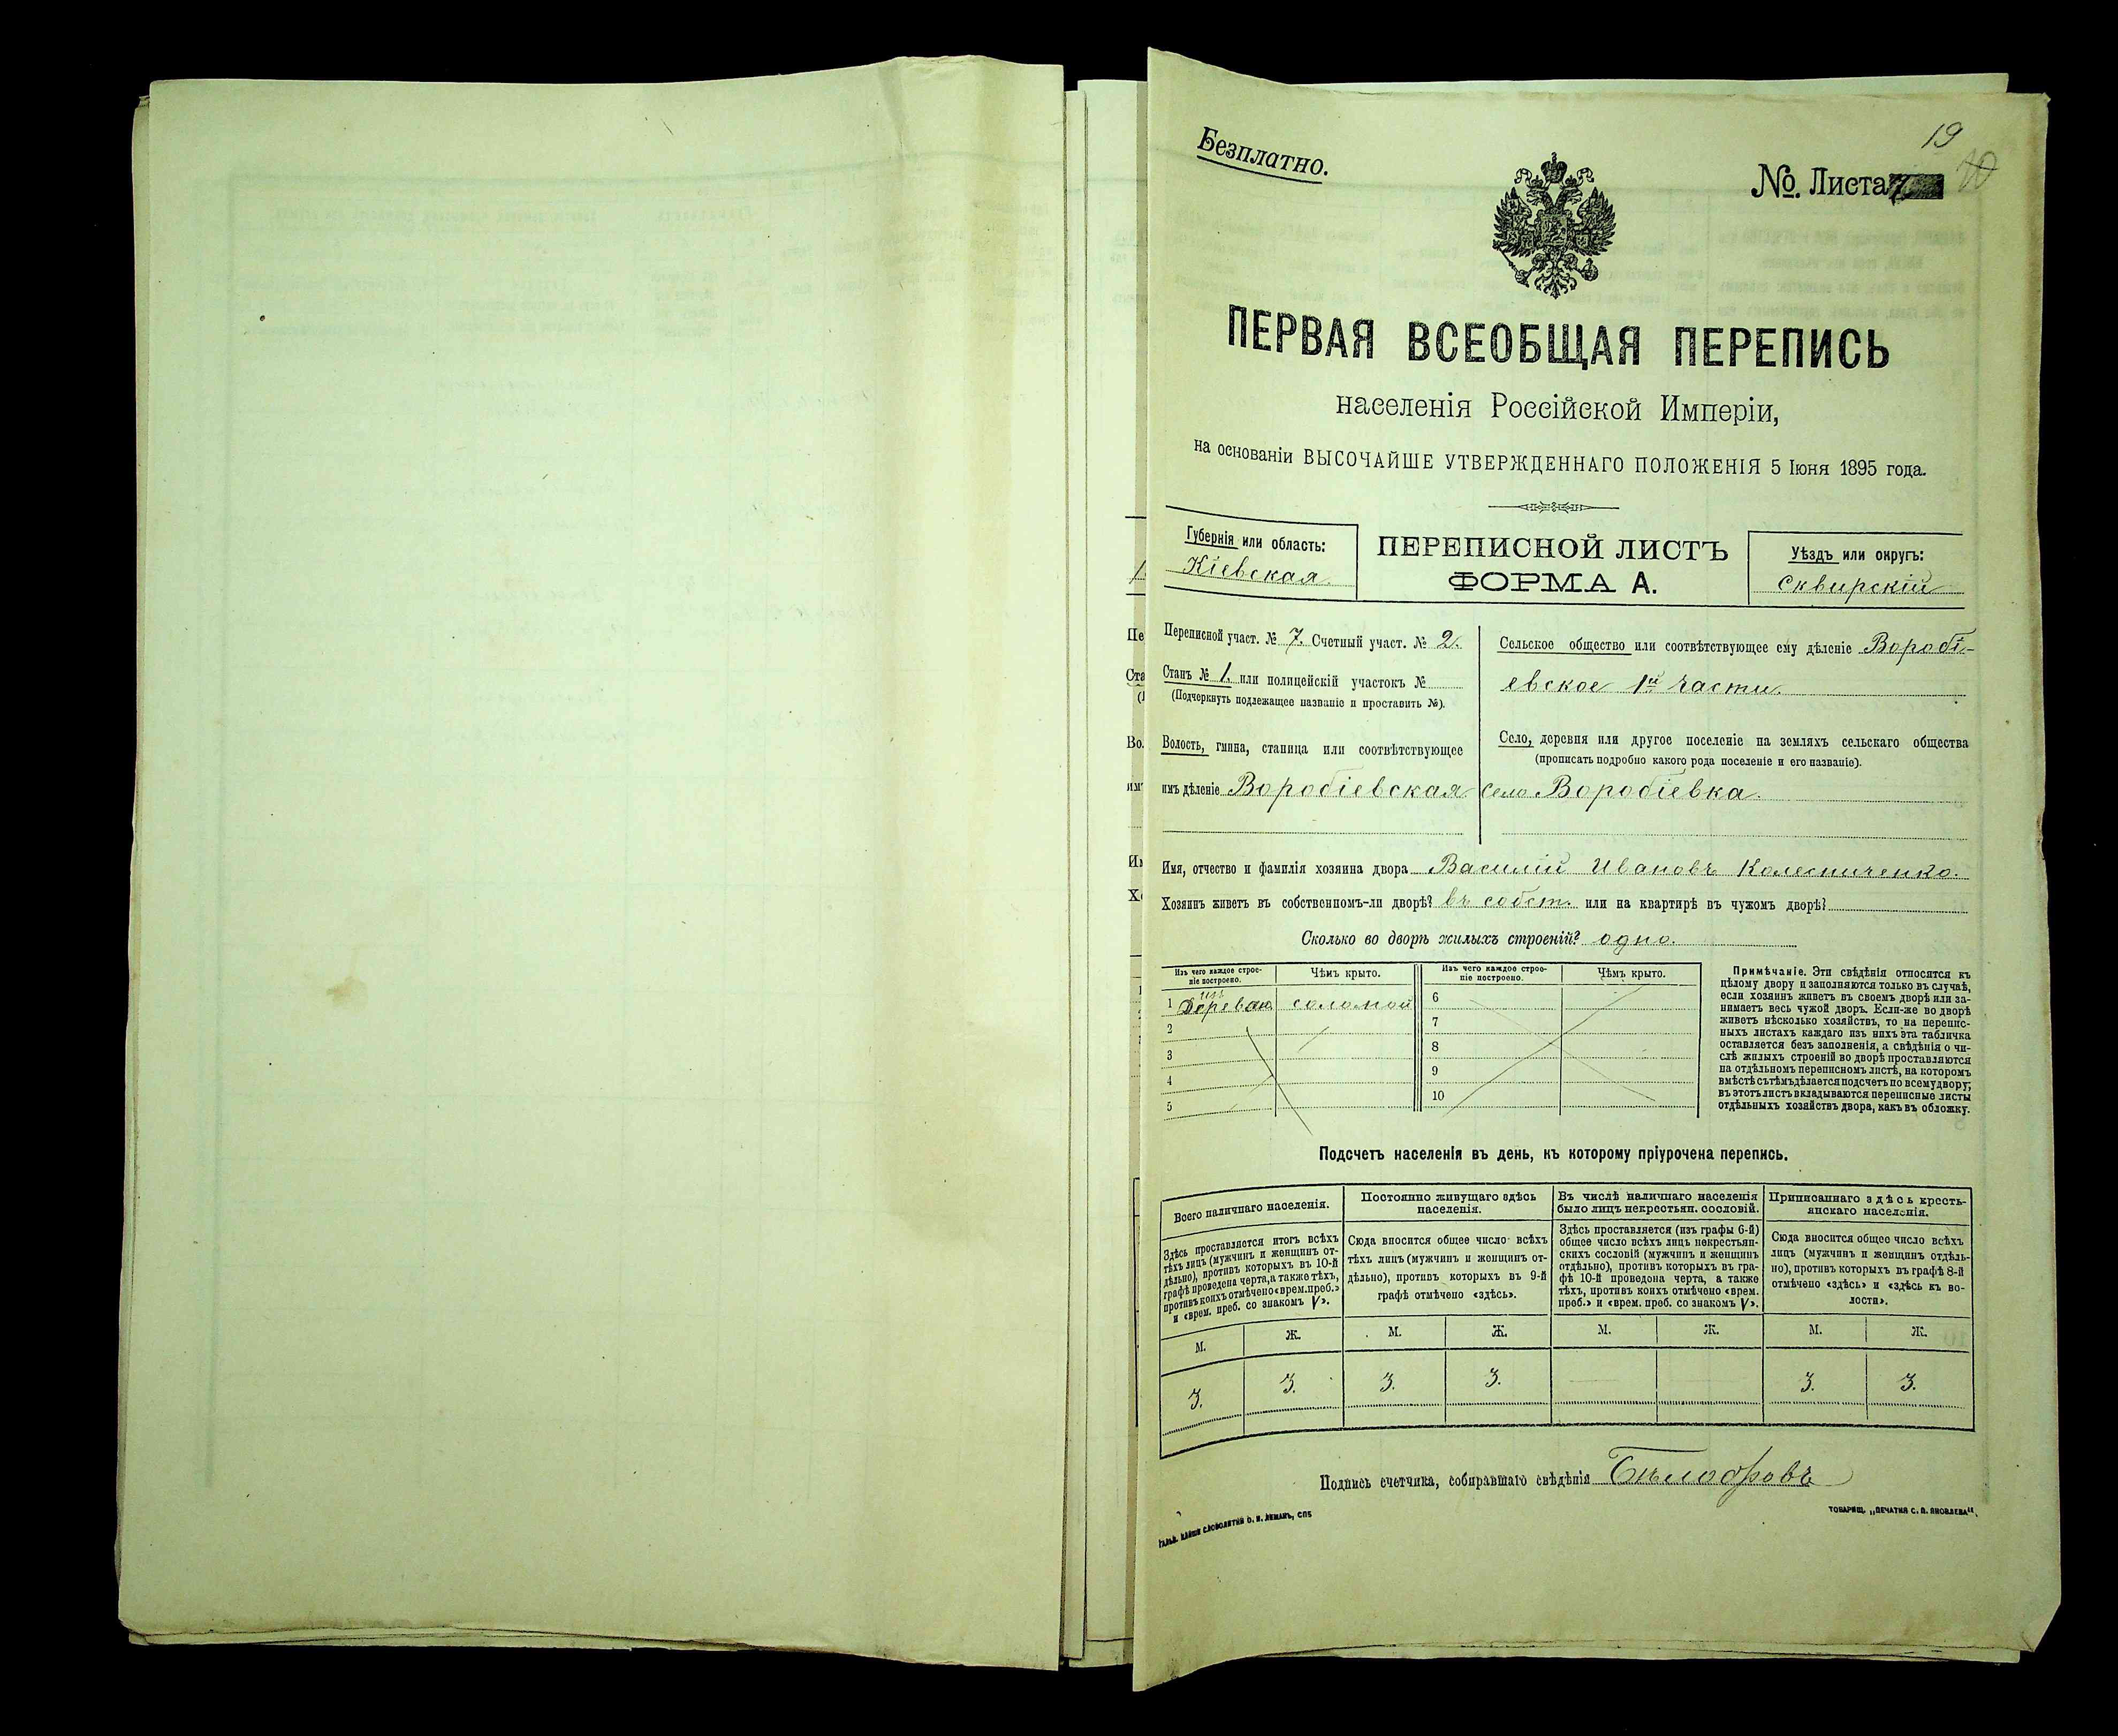 19
Безплатно.
№ Листа 7
ПЕРВАЯ ВСЕОБЩАЯ ПЕРЕПИСЬ
населенія Россійской Имперіи,
на основаніи ВЫСОЧАЙШЕ УТВЕРЖДЕННАГО ПОЛОЖЕНІЯ 5 Іюня 1895 года.
Губернія или область:
Кіевская
ПЕРЕПИСНОЙ ЛИСТЪ
ФОРМА А.
Уѣздъ или округъ:
Сквирскій
Переписной участ. № 7. Счетный участ. № 2.
Станъ № 1. или полицейскій участокъ №
(Подчеркнуть подлежащее названіе и проставить №).
Волость, гмина, станица или соотвѣтствующее
имъ дѣленіе Воробіевская
Сельское общество или соотвѣтствующее ему дѣленіе Воробі-
евское 1й части.
Село, деревня или другое поселеніе на земляхъ сельскаго общества
(прописать подробно какого рода поселеніе и его названіе).
село Воробіевка.
Имя, отчество и фамилія хозяина двора Василій Ивановъ Колесниченко.
Хозяинъ живетъ въ собственномъ-ли дворѣ? въ собст. или на квартирѣ въ чужомъ дворѣ?
Сколько во дворѣ жилыхъ строеній? одно.
Изъ чего каждое строе-
ніе построено.
Чѣмъ крыто.
Изъ чего каждое строе-
ніе построено.
Чѣмъ крыто.
1 изъ дерева соломой
2
3
4
5
6
7
8
9
10
Примѣчаніе. Эти свѣдѣнія относятся къ
цѣлому двору и заполняются только въ случаѣ,
если хозяинъ живетъ въ своемъ дворѣ или за-
нимаетъ весь чужой дворъ. Если-же во дворѣ
живетъ нѣсколько хозяйствъ, то на перепис-
ныхъ листахъ каждаго изъ нихъ эта табличка
оставляется безъ заполненія, а свѣдѣнія о чи-
слѣ жилыхъ строеній во дворѣ проставляются
на отдѣльномъ переписномъ листѣ, на которомъ
вмѣстѣ съ тѣмъ дѣлается подсчетъ по всему двору;
въ этотъ листъ вкладываются переписные листы
отдѣльныхъ хозяйствъ двора, какъ въ обложку.
Подсчетъ населенія въ день, къ которому пріурочена перепись.
Всего наличнаго населенія.
Здѣсь проставляется итогъ всѣхъ
тѣхъ лицъ (мужчинъ и женщинъ от-
дѣльно), противъ которыхъ въ 10-й
графѣ проведена черта, а также тѣхъ,
противъ коихъ отмѣчено «врем. преб.»
и «врем. преб. со знакомъ V».
Постоянно живущаго здѣсь
населенія.
Сюда вносится общее число всѣхъ
тѣхъ лицъ (мужчинъ и женщинъ от-
дѣльно), противъ которыхъ въ 9-й
графѣ отмѣчено «здѣсь».
Въ числѣ наличнаго населенія
было лицъ некрестьян. сословій.
Здѣсь проставляется (изъ графы 6-й)
общее число всѣхъ лицъ некрестьян-
скихъ сословій (мужчинъ и женщинъ
отдѣльно), противъ которыхъ въ гра-
фѣ 10-й проведена черта, а также
тѣхъ, противъ коихъ отмѣчено «врем.
преб.» и «врем. преб. со знакомъ V».
Приписаннаго здѣсь кресть-
янскаго населенія.
Сюда вносится общее число всѣхъ
лицъ (мужчинъ и женщинъ отдѣль-
но), противъ которыхъ въ графѣ 8-й
отмѣчено «здѣсь» и «здѣсь къ во-
лости».
М. Ж. М. Ж. М. Ж. М. Ж.
3. 3. 3. 3. 3. 3.
Подпись счетчика, собиравшаго свѣдѣнія
ТОВАРИЩ. „ПЕЧАТНЯ С. П. ЯКОВЛЕВА".
СЛОВОЛИТНИ О. И. ЛЕМАНЪ, СПБ